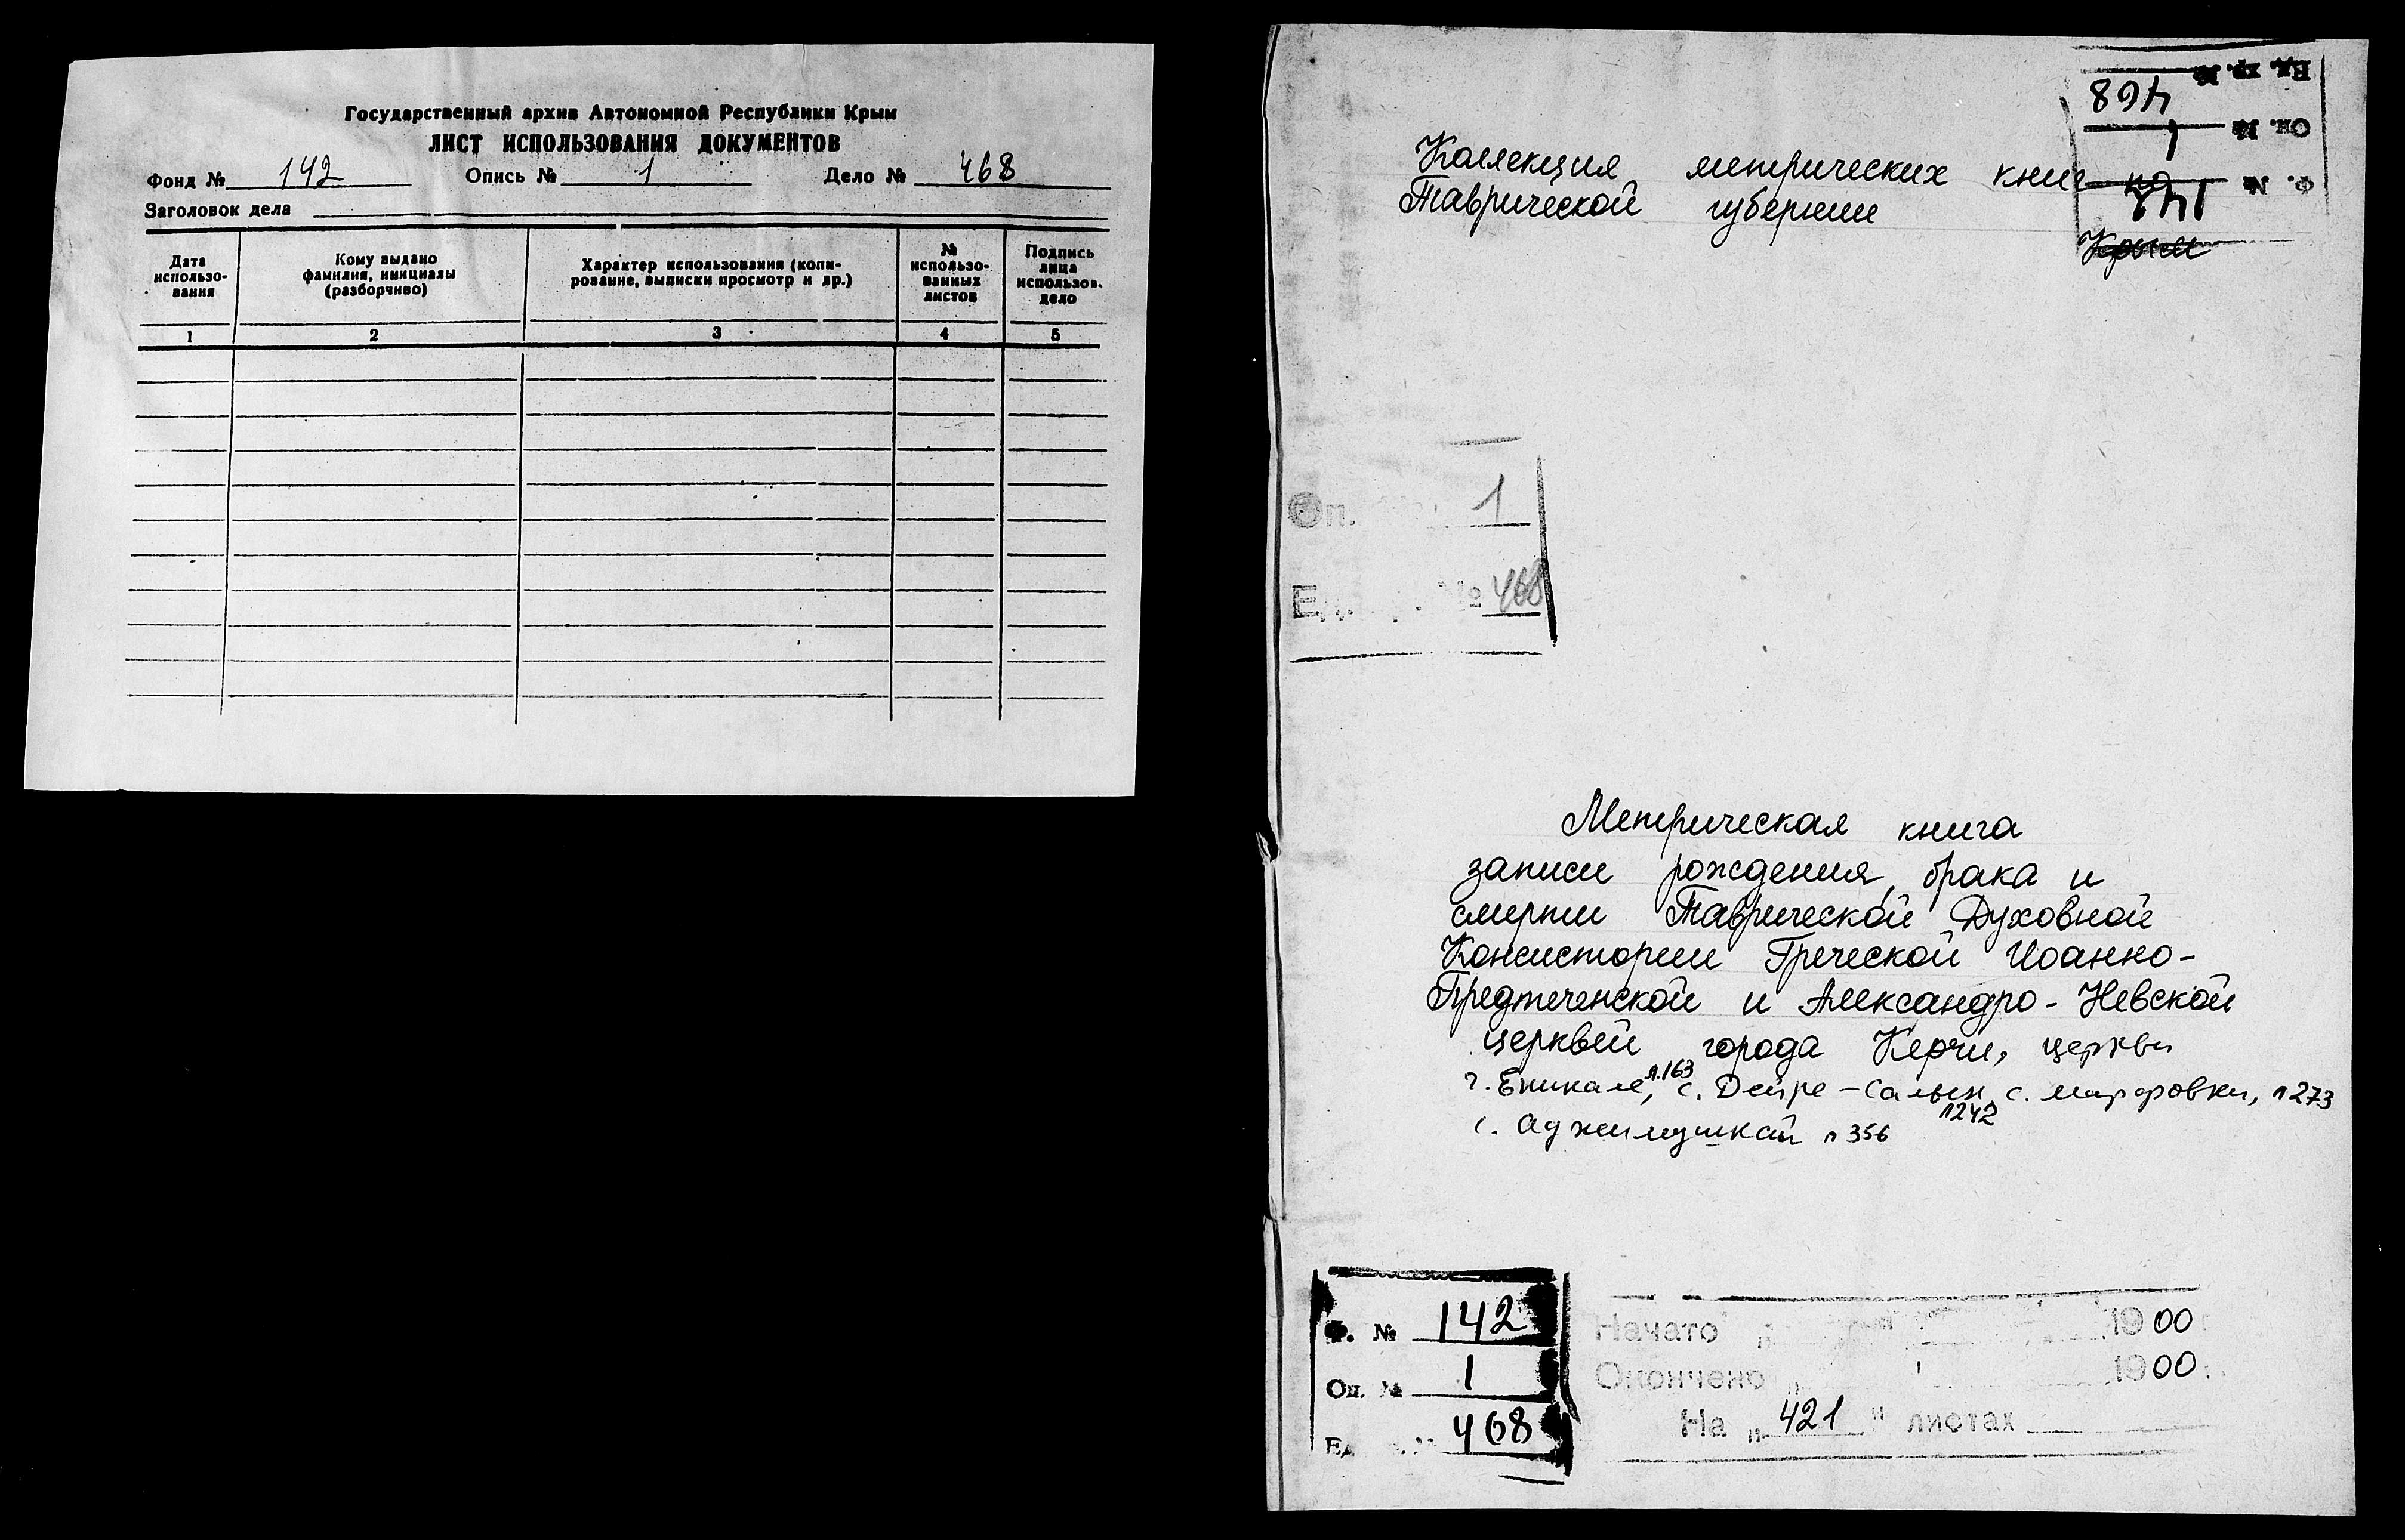 Государственный архив Автономной Республики Крым
ЛИСТ ИСПОЛЬЗОВАНИЯ ДОКУМЕНТОВ
Фонд № 142 Опись № 1 Дело № 468
Заголовок дела
Дата использо-вания
Кому выдано фамилия, инициалы (разборчиво)
Характер использования (копи-рование, выписки просмотр и др.)
№ использо-ванных листов
Подпись лица использов. дело
1 2 3 4 5
Ед. хр. № 468
Оп. № 1
Ф. № 142
Коллекция метрических книг
Таврической губернии
Крым
Оп. 1
Е № 468
Метрическая книга
записи рождения, брака и
смерти Таврической Духовной
Консистории Греческой Иоанно-
Предтеченской и Александро-Невской
церквей города Керчи, церкви
г. Еникале, л.163 с. Дейре-Салын, л242 с. Марфовки, л273
с. Аджимушкай л 356
Ф. № 142
Оп. № 1
Ед. № 468
Начато 1900
Окончено 1900
На „421" листах